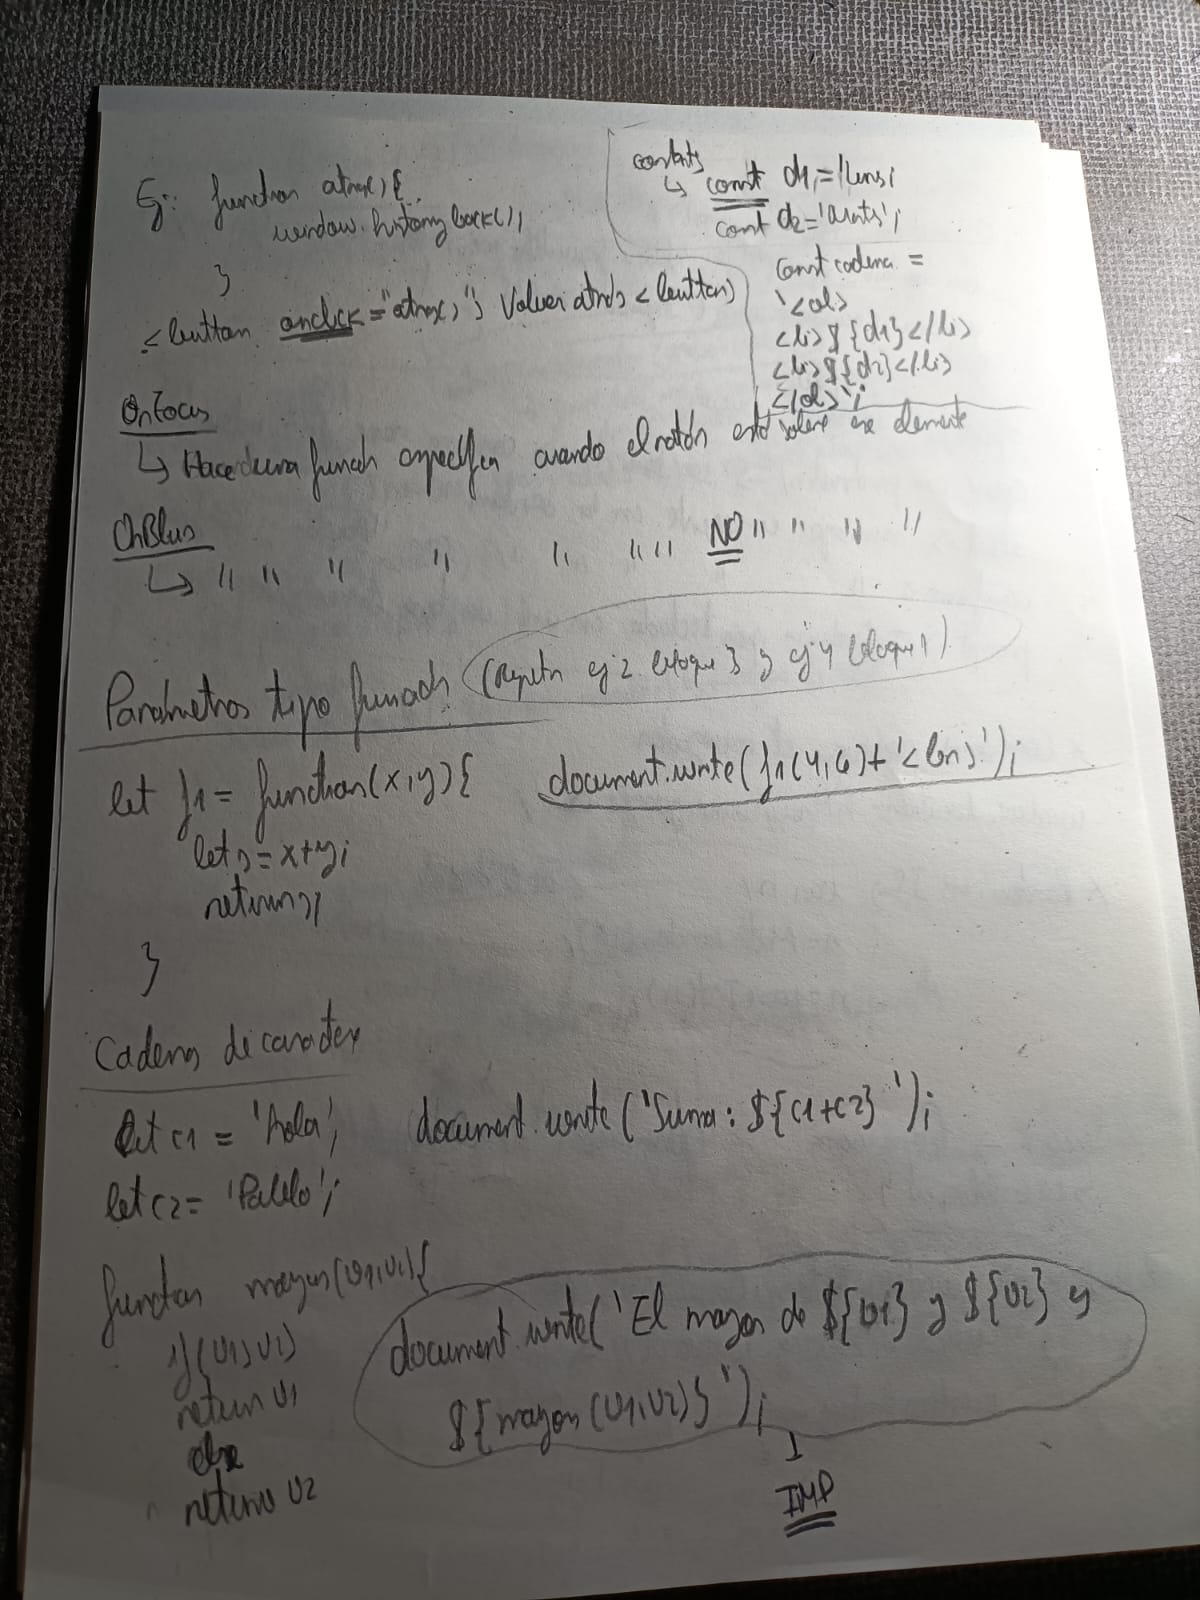 Ej: function atras(){
window.history.back();
}
<button onclick="atras()"> Volver atrás <button>
constants
↳ const d1='Luns';
const d2='Marts';
const cadena =
`<ol>
<li>${d1}</li>
<li>${d2}</li>
</ol>`;
OnFocus
↳ Hace una función específica cuando el ratón está sobre ese elemento
OnBlur
↳ " " " " " " " NO " " " "
Parámetros tipo función (Repetir ej 2 bloque 3 y ej 4 bloque 1)
let f1 = function(x,y){ document.write(f1(4,6)+'<br>');
let s=x+y;
return s;
}
Cadenas de caracter
let c1 = 'hola'; document.write('Suma: ${c1+c2}');
let c2= 'Pablo';
function mayor(v1,v2){
if(v1>v2)
return v1
else
return v2
document.write('El mayor de ${v1} y ${v2} y
${mayor(v1,v2)}');
IMP